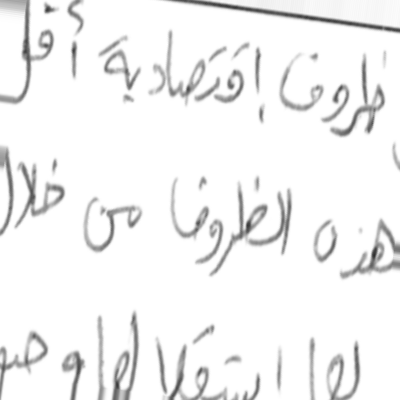 ظروف إقتصادية أقل
هذه الظروف من خلال
لها استقلالها و